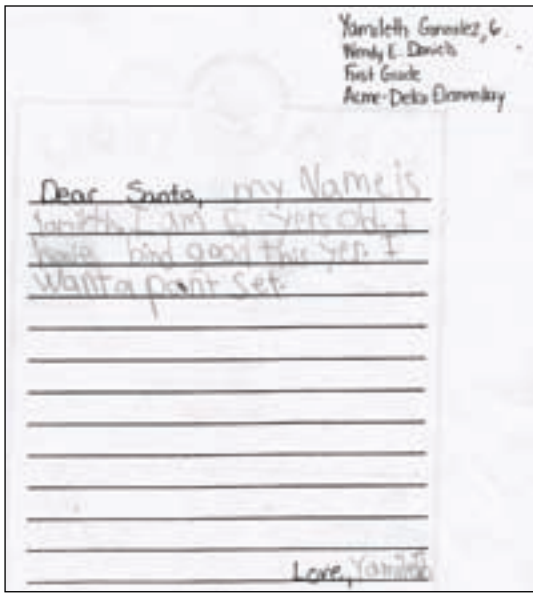 Yamileth Gonzalez, 6
Wendy E. Daniels
First Grade
Acme-Delco Elementary
Dear Santa, my Name is
Yamileth I am 6 yers old. I
have bind good this yer. I
want a pant set.
Love, Yamileth